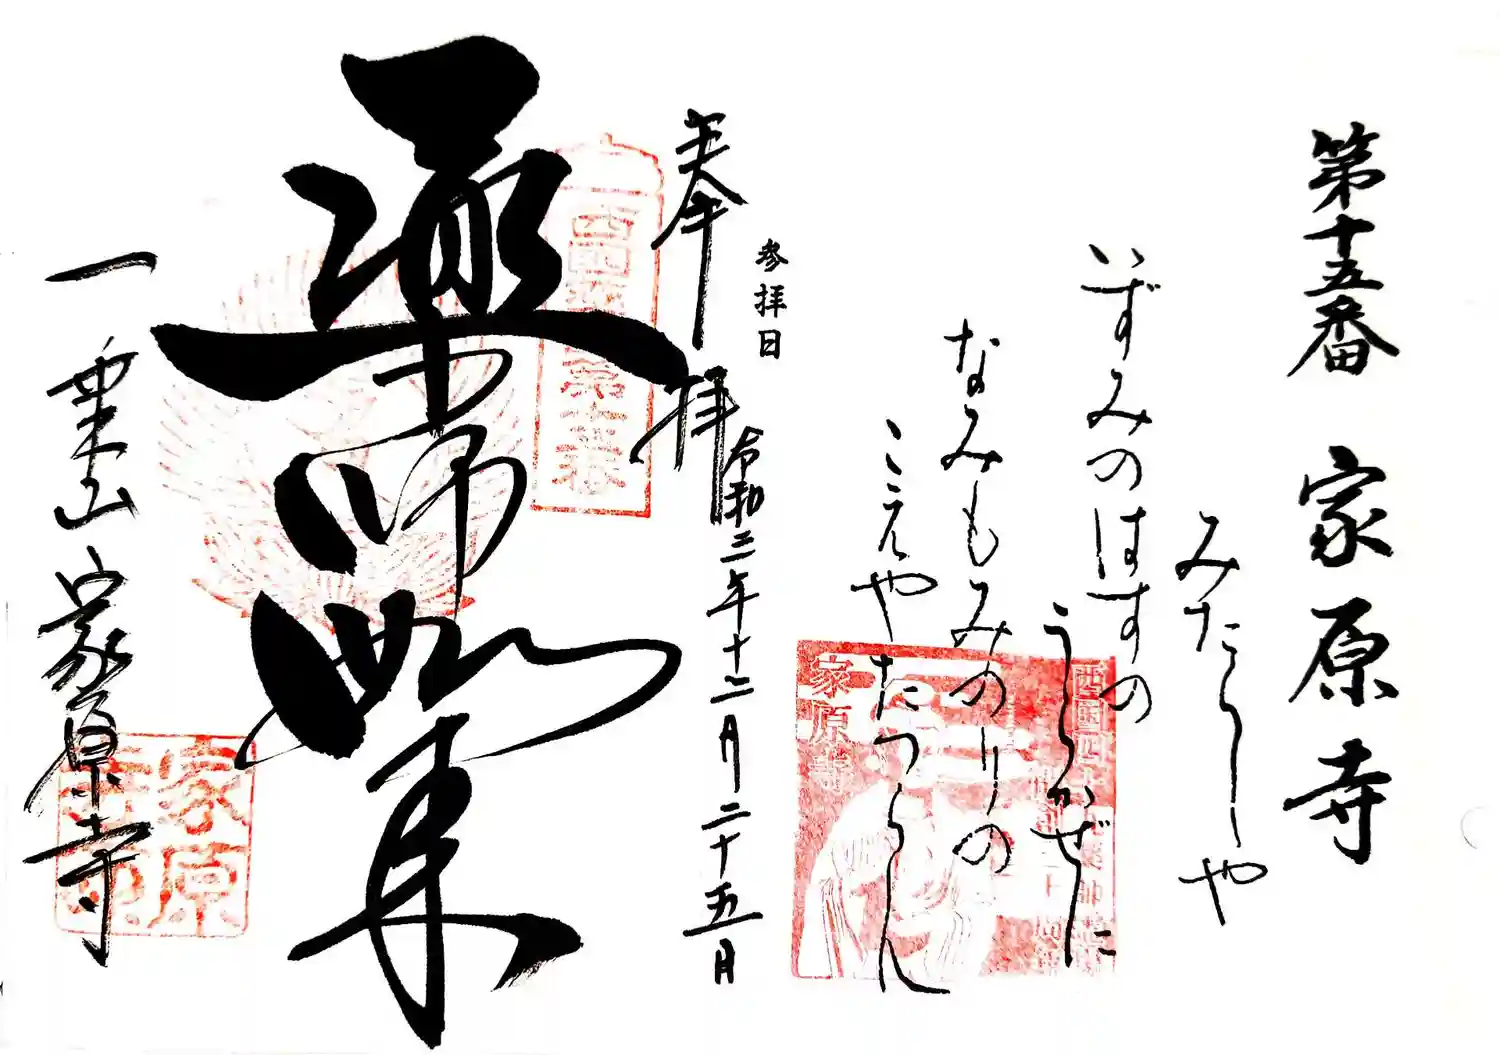 第十五番 家原寺
みたらしや
いずみのはすの
うらかぜに
なみもみのりの
こえやたつらん
参拝日
令和二年十二月二十五日
奉拝
薬師如来
一乗山 家原寺
家原寺
家原